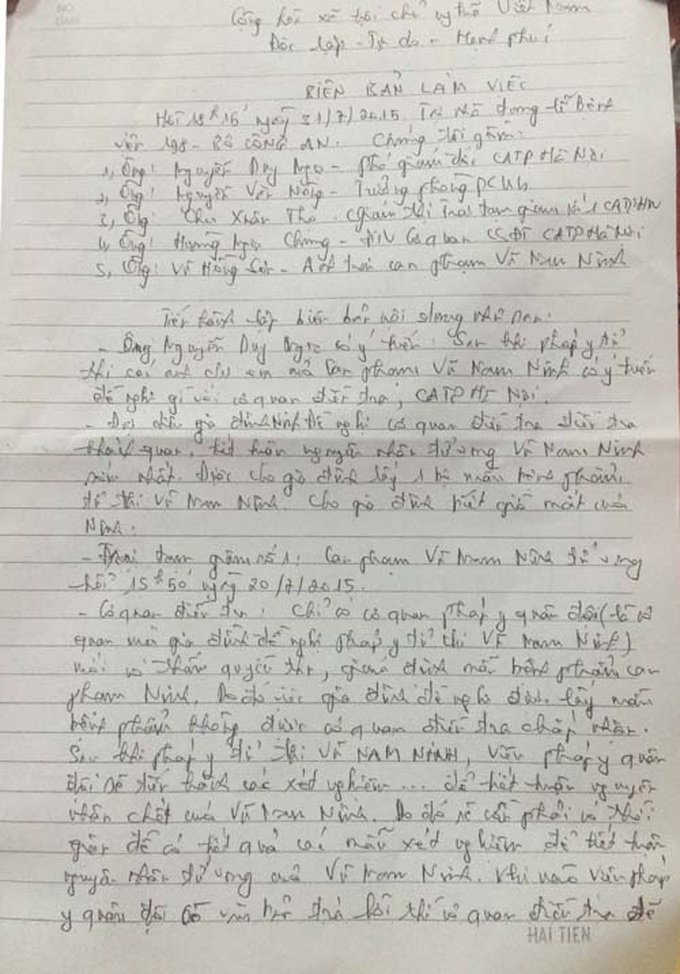 Cộng hòa xã hội chủ nghĩa Việt Nam
Độc lập - Tự do - Hạnh phúc
BIÊN BẢN LÀM VIỆC
Hồi 18h15' ngày 21/7/2015. Tại Nhà tang lễ bệnh
viện 198 - BỘ CÔNG AN. Chúng tôi gồm:
1, Ông: Nguyễn Duy Ngọc - phó giám đốc CATP Hà Nội
2, Ông: Nguyễn Văn - Trưởng phòng PC
3, Ông: Chu Xuân - Giám thị Trại tạm giam số 1 CATPHN
4, Ông: Hương Ngọc Chung - ĐTV Cơ quan CSĐT CATP Hà Nội
5, Ông: Vũ Hồng - Anh trai can phạm Vũ Nam Ninh
Tiến hành lập biên bản nội dung như sau:
- Ông Nguyễn Duy Ngọc có ý kiến: Sau khi pháp y tử
thi các anh chị em của can phạm Vũ Nam Ninh có ý kiến
đề nghị gì với cơ quan điều tra, CATP Hà Nội.
- Đại diện gia đình Ninh đề nghị cơ quan điều tra điều tra
khách quan, kết luận nguyên nhân tử vong Vũ Nam Ninh
sớm nhất. Được cho gia đình lấy 1 bộ mẫu bệnh phẩm
tử thi Vũ Nam Ninh. Cho gia đình biết mặt của
Ninh.
- Trại tạm giam số 1: Can phạm Vũ Nam Ninh tử vong
hồi 15h50' ngày 20/7/2015.
- Cơ quan điều tra: Chỉ có cơ quan pháp y quân đội (là cơ
quan mà gia đình đề nghị pháp y tử thi Vũ Nam Ninh)
mới có thẩm quyền thu, giám định mẫu bệnh phẩm can
phạm Ninh. Do đó việc gia đình đề nghị được lấy mẫu
bệnh phẩm không được cơ quan điều tra chấp nhận.
Sau khi pháp y tử thi VŨ NAM NINH, Viện pháp y quân
đội sẽ tiến hành các xét nghiệm... để kết luận nguyên
nhân chết của Vũ Nam Ninh. Do đó sẽ cần phải có thời
gian để có kết quả các mẫu xét nghiệm để kết luận
nguyên nhân tử vong của Vũ Nam Ninh. Khi nào Viện pháp
y quân đội có văn bản trả lời thì cơ quan điều tra sẽ
HẢI TIẾN